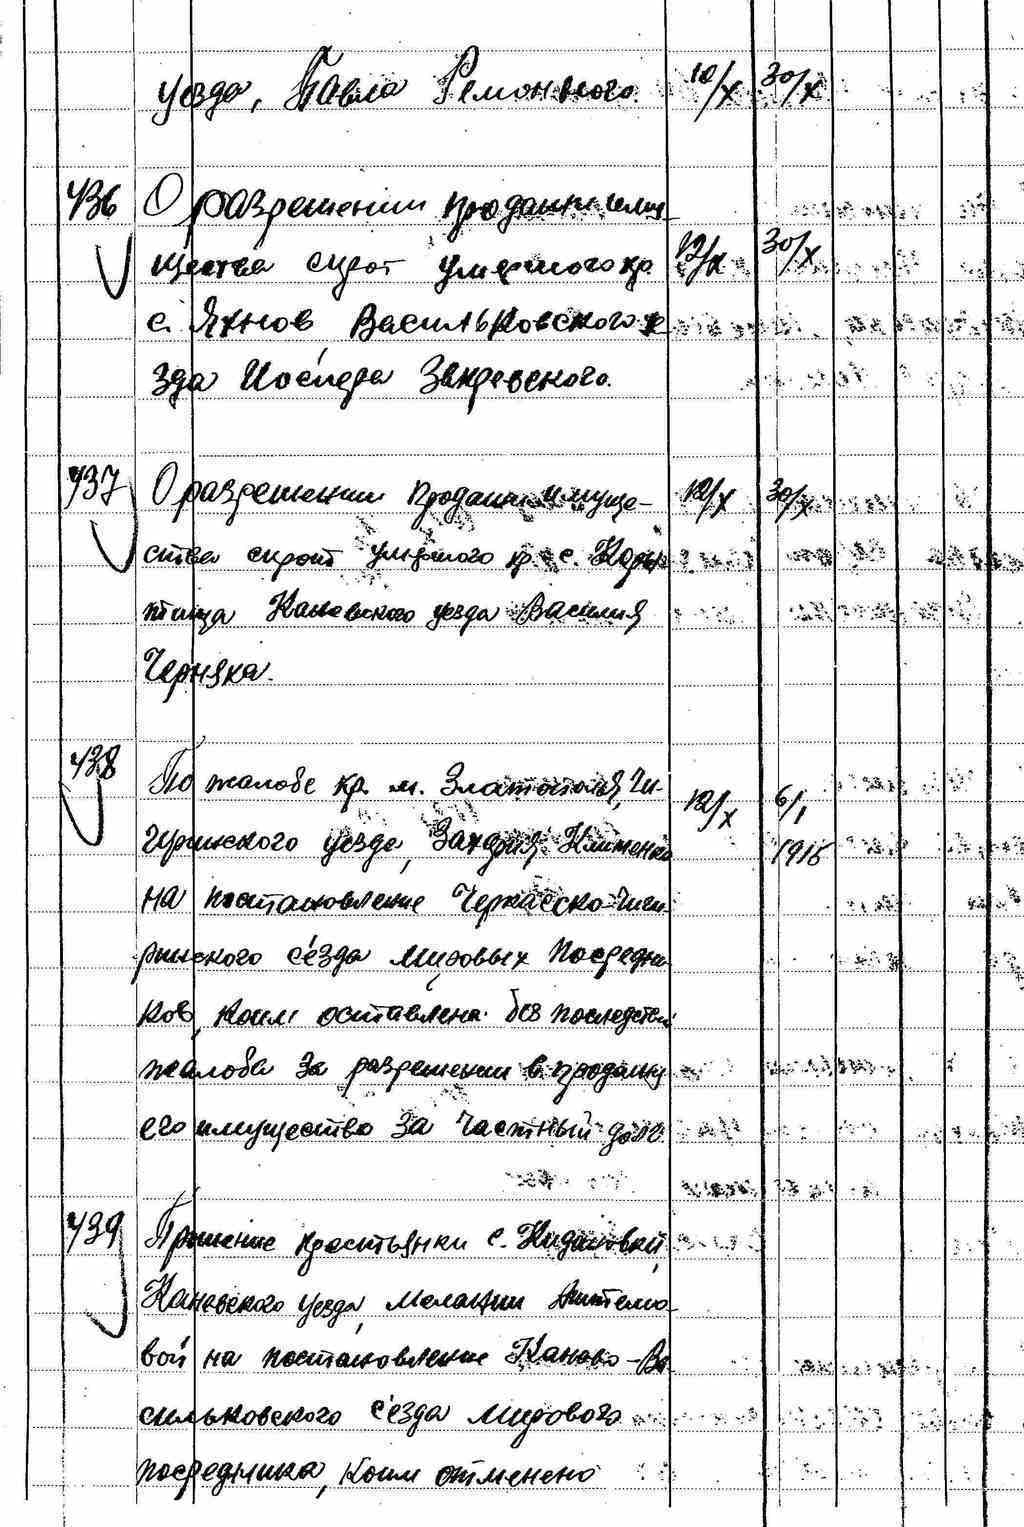 уезда, Павла Ремонтного. 10/X 30/X
436 О разрешении продажи иму-
щества сирот умершого кр. 12/X 30/X
с. Яхнов Васильковского уе
зда Иосифа Закревского.
437 О разрешении продажи имуще- 12/X 30/X
ства сирот умершого кр. с.
Каневского уезда Василия
Черняка.
438 По жалобе кр. м. Златополя, Чи- 12/X 6/I
гиринского уезда, Захария Клименко 1916
на постановление Черкасско-Чиги-
ринского съезда мировых посредни
ков, коим оставлена без последствий
жалоба за разрешении в продажу
его имущество за частный долг
439 Прошение крестьянки с.
Каневского уезда, Мелании
вой на постановление Канево-Ва
сильковского съезда мирового
посредника, коим отменено